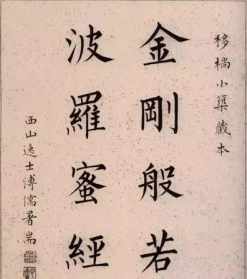 移小築藏本
金剛般若
波羅蜜經
西山逸士溥儒署耑